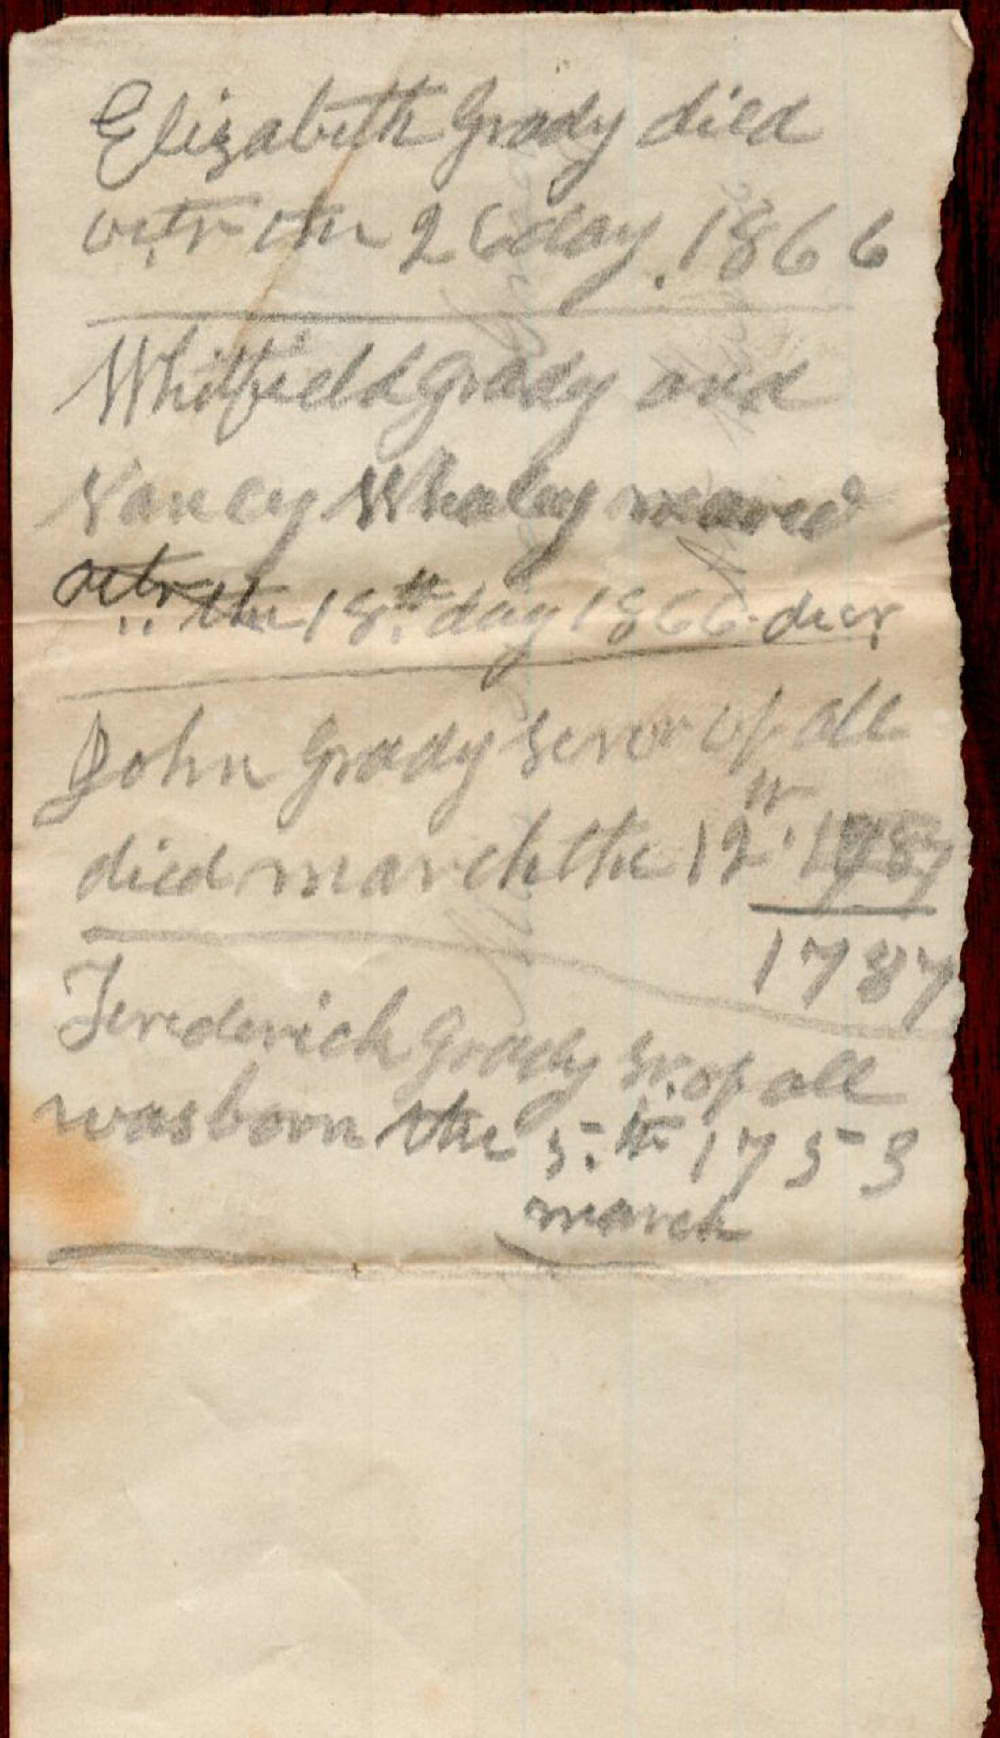 Elizabeth Grady died
octr the 26 day. 1866
Whitfield Grady and
Nancy Whaley mared
octr the 18.th day 1866. decr
John Grady senor of all
died march the 12th. 1787
1787
Frederick Grady Sr. of all
was born the 5.th 1753
march